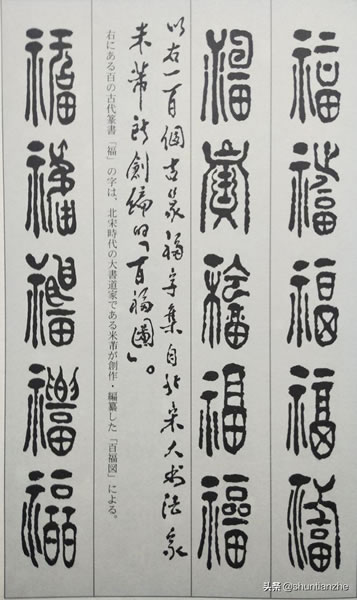 福福福福福
福福福福福
以右一百個古篆福字集自北宋大书法家
米芾所創編的「百福圖」。
右にある百の古代篆書「福」の字は、北宋時代の大書道家である米芾が創作・編纂した「百福図」による。
福福福福福
头条 @shuntianzhe